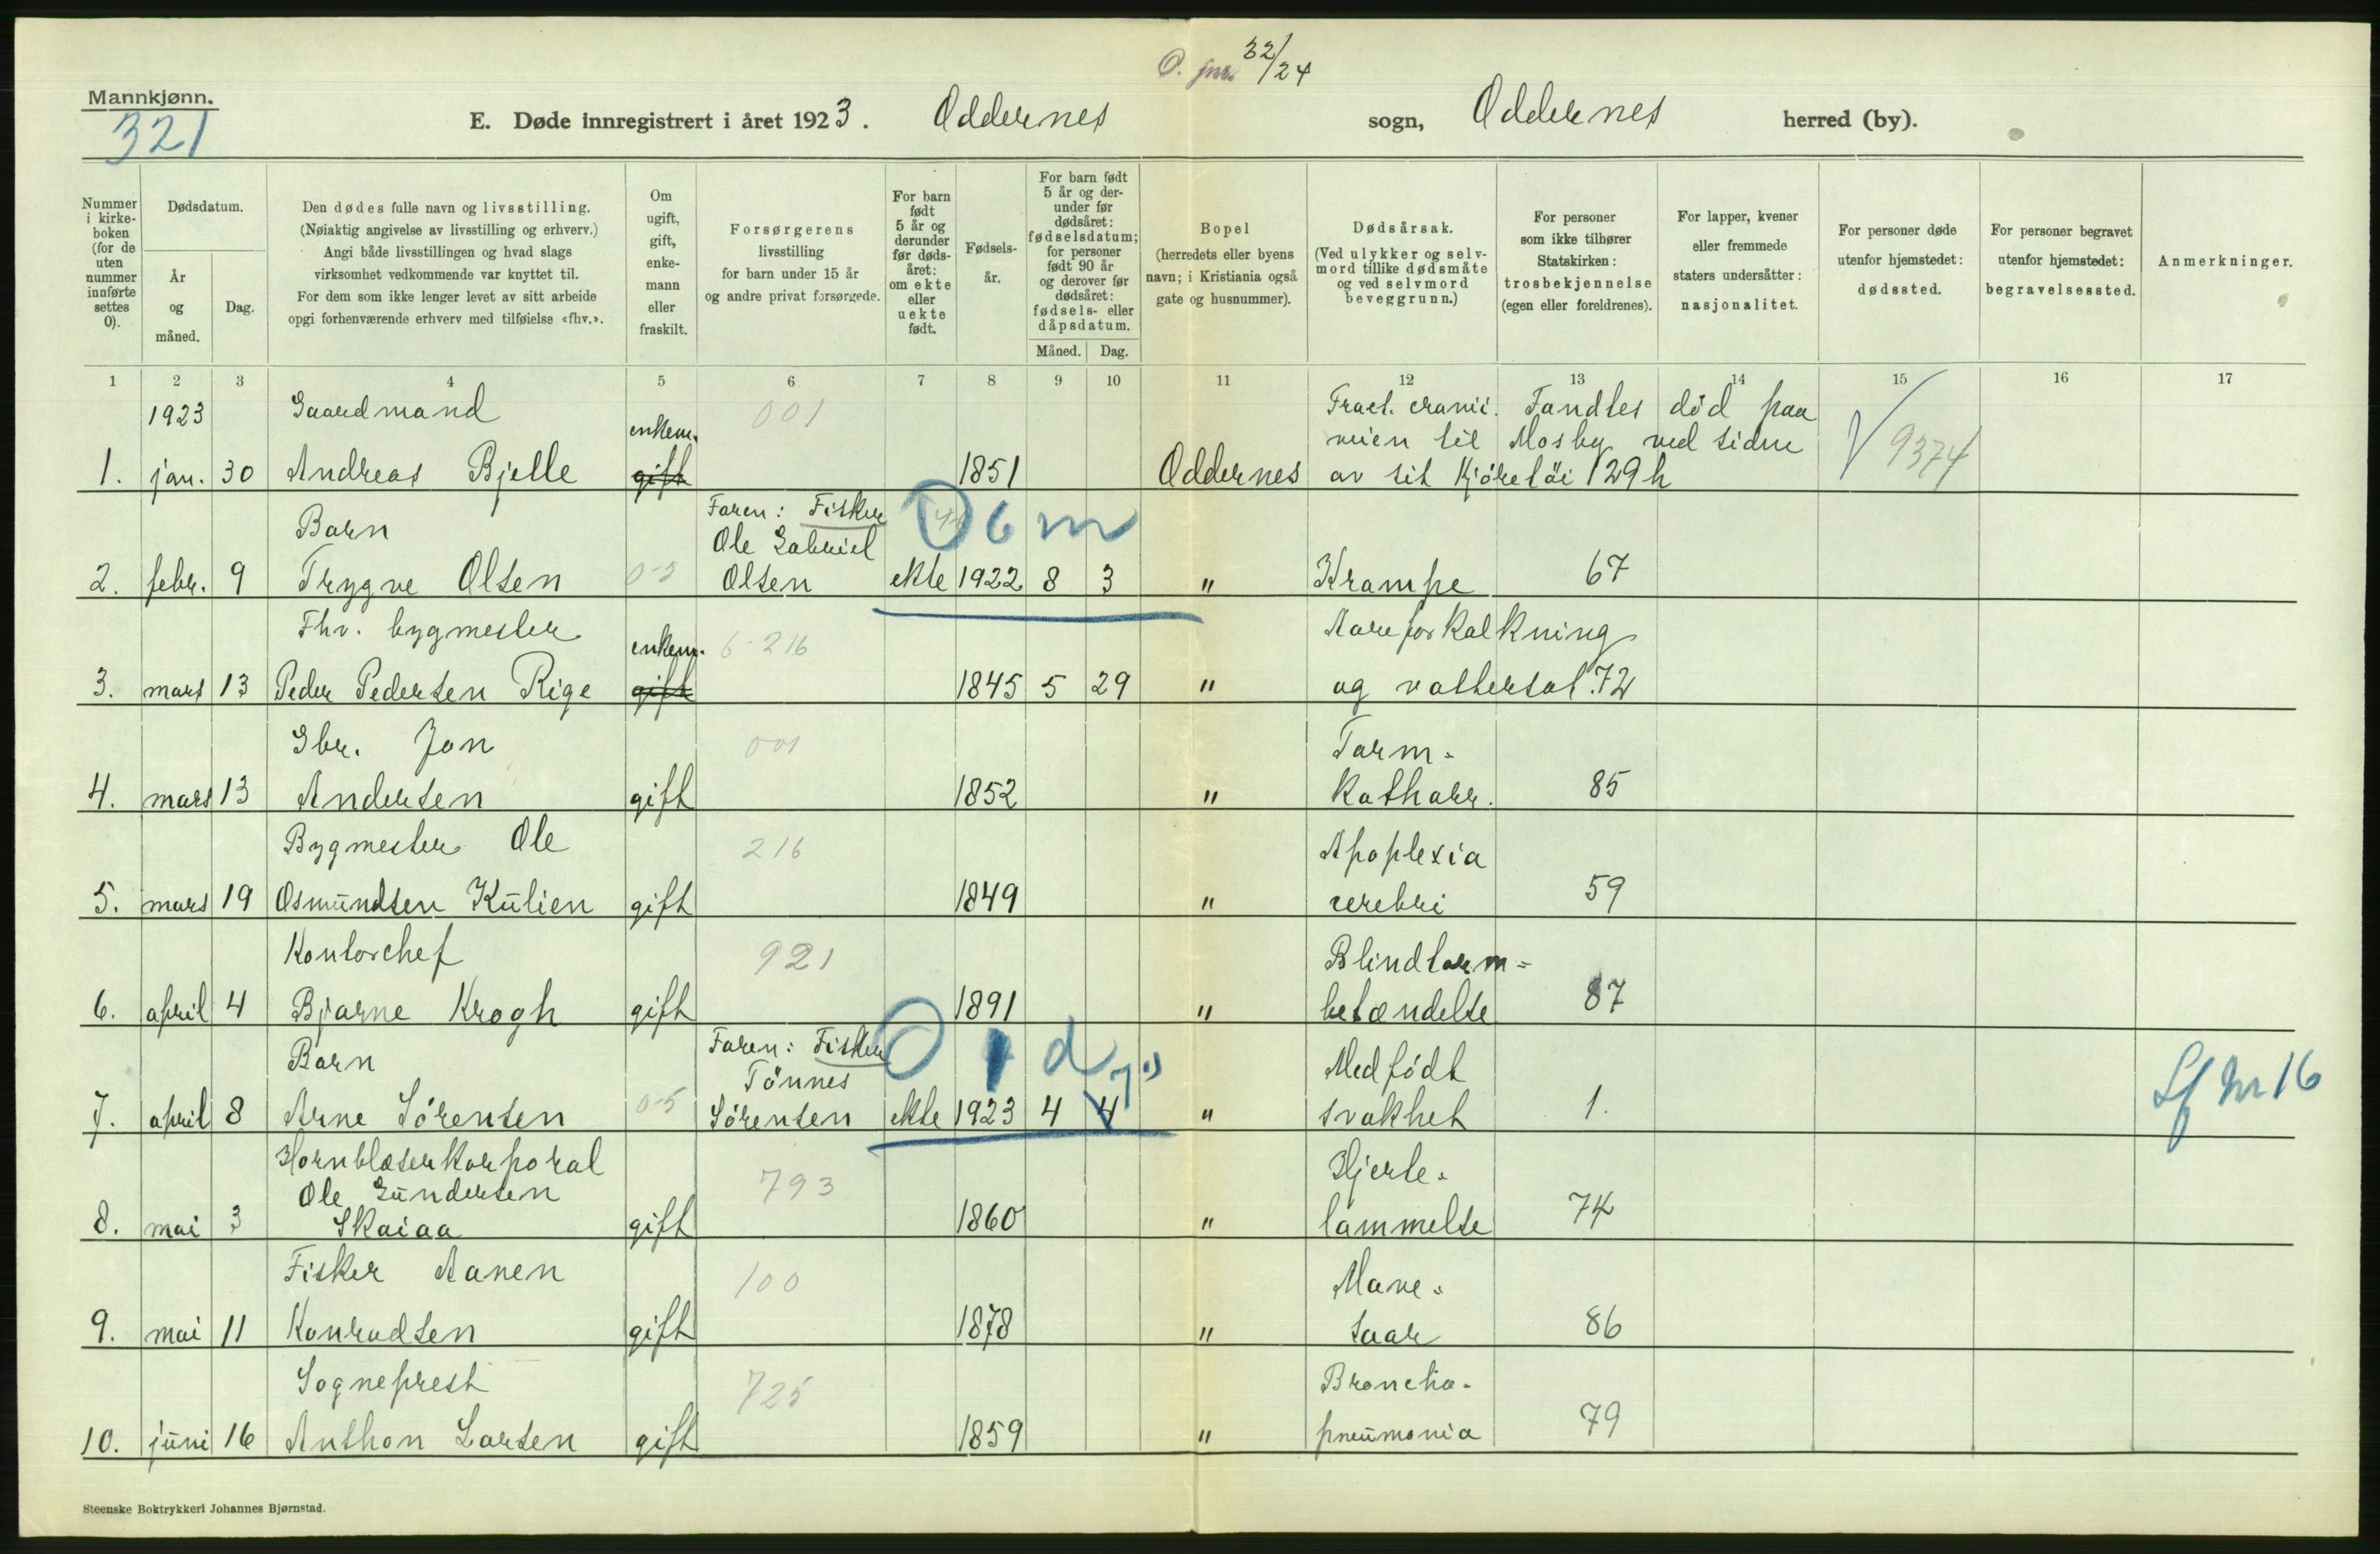 32/24
O. jnr.
Mannkjønn.
321
E. Døde innregistrert i året 1923. Oddernes sogn, Oddernes herred (by).
Nummer i kirke-boken (for de uten nummer innførte settes 0).
Dødsdatum.
År og måned.
Dag.
Den dødes fulle navn og livsstilling.
(Nøiaktig angivelse av livsstilling og erhverv.)
Angi både livsstillingen og hvad slags
virksomhet vedkommende var knyttet til.
For dem som ikke lenger levet av sitt arbeide
opgi forhenværende erhverv med tilføielse «fhv.».
Om ugift, gift, enke-mann eller fraskilt.
Forsørgerens
livsstilling
for barn under 15 år
og andre privat forsørgede.
For barn født 5 år og derunder før døds-året: om ekte eller uekte født.
Fødsels-år.
For barn født 5 år og der-under før dødsåret: fødselsdatum; for personer født 90 år og derover før dødsåret: fødsels- eller dåpsdatum.
Måned. Dag.
Bopel
(herredets eller byens
navn; i Kristiania også
gate og husnummer).
Dødsårsak.
(Ved ulykker og selv-
mord tillike dødsmåte
og ved selvmord
beveggrunn.)
For personer
som ikke tilhører
Statskirken:
trosbekjennelse
(egen eller foreldrenes).
For lapper, kvener
eller fremmede
staters undersåtter:
nasjonalitet.
For personer døde
utenfor hjemstedet:
dødssted.
For personer begravet
utenfor hjemstedet:
begravelsessted.
Anmerkninger.
1 2 3 4 5 6 7 8 9 10 11 12 13 14 15 16 17
1923 Gaardmand enkem. 001 Fract. cranii. Fandtes død paa
veien til Mosby ved siden
1. jan. 30 Andreas Bjelle gift 1851 Oddernes av sit Kjøretöi 129h V 9374
Barn Faren: Fisker 6 m
Ole Gabriel
2. febr. 9 Trygve Olsen 0-5 Olsen ekte 1922 8 3 " Krampe 67
Fhv. bygmester enkem. 6-216 Aareforkalkning
3. mars 13 Peder Pedersen Rige gift 1845 5 29 " og vattersot. 72
Gbr. Jon 001 Tarm-
4. mars 13 Andersen gift 1852 " Katharr. 85
Bygmester Ole 216 Apoplexia
5. mars 19 Osmundsen Kulien gift 1849 " cerebri 59
Kontorchef 921 Blindtarm=
6. april 4 Bjarne Krogh gift 1891 " betændelse 87
Barn Faren: Fisker 0 1 d Medfödt
Tönnes 7 1)
7. april 8 Arne Sörensen 0-5 Sörensen ekte 1923 4 4 " svakhet 1. Lf nr 16
Hornblæserkorporal
Ole Gundersen 793 Hjerte-
8. mai 3 Skaiaa gift 1860 " lammelse 74
Fisker Aanen 100 Mave-
9. mai 11 Konradsen gift 1878 " saar 86
Sogneprest 725 Broncho-
10. juni 16 Anthon Larsen gift 1859 " pneumonia 79
Steenske Boktrykkeri Johannes Bjørnstad.